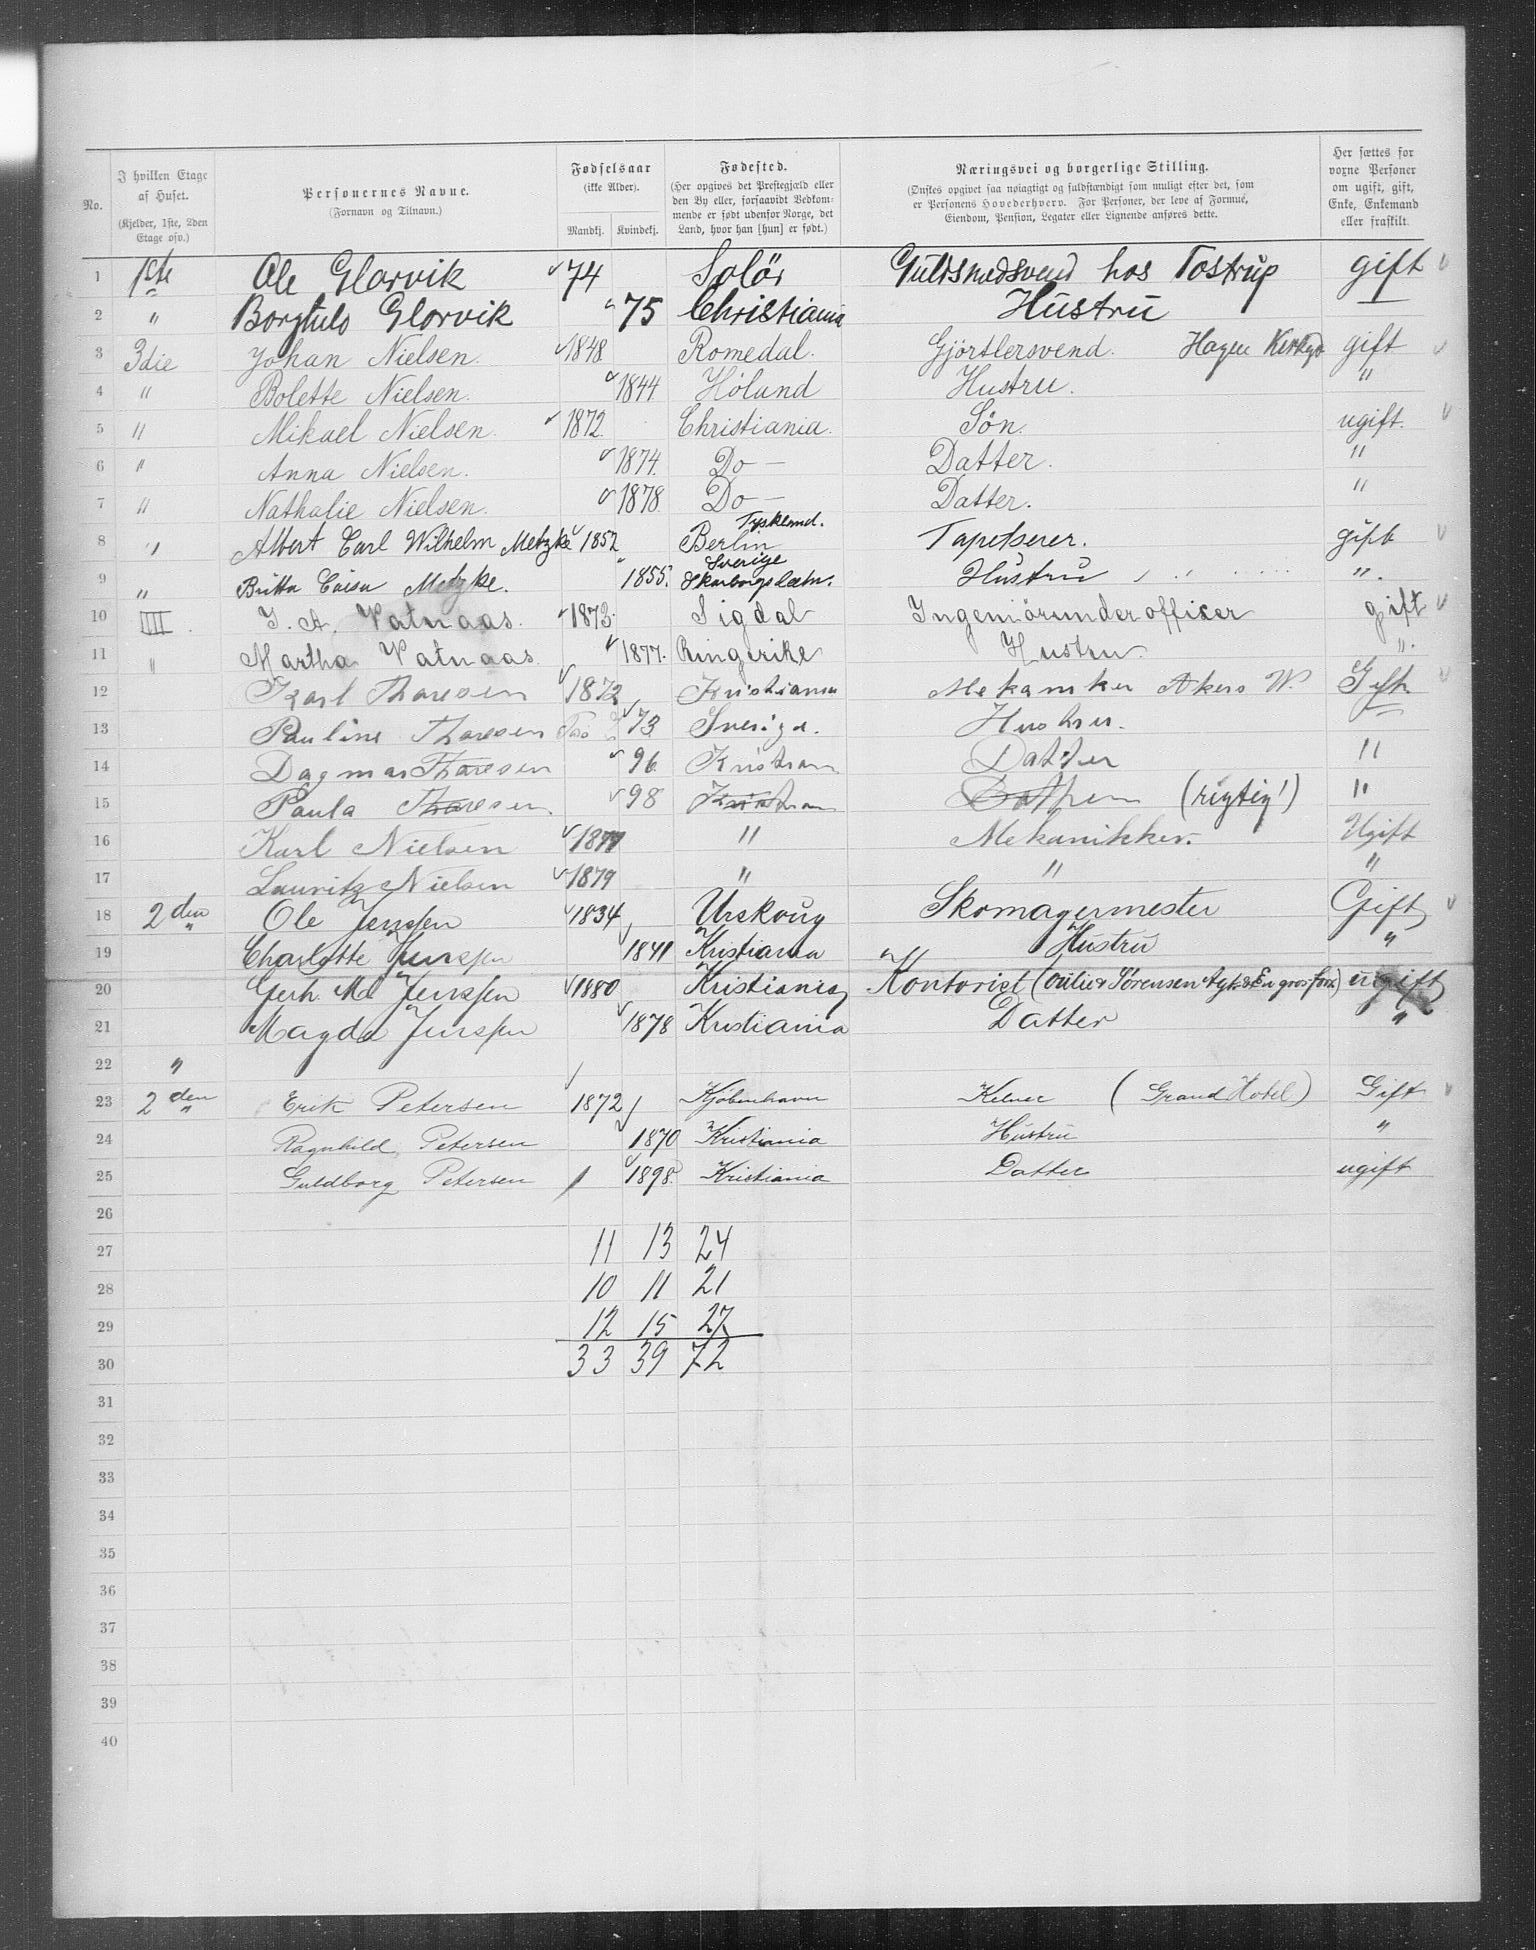 No.
I hvilken Etage af Huset. (Kjelder, 1ste, 2den Etage osv.)
Personernes Navne. (Fornavn og Tilnavn.)
Fødselsaar (ikke Alder). Mandkj. Kvindekj.
Fødested. (Her opgives det Prestegjæld eller den By eller, forsaavidt Vedkommende er født udenfor Norge, det Land, hvor han [hun] er født.)
Næringsvei og borgerlige Stilling. (Ønskes opgivet saa nøiagtigt og fuldstændigt som muligt efter det, som er Personens Hovederhverv. For Personer, der leve af Formue, Eiendom, Pension, Legater eller Lignende anføres dette.
Her sættes for voxne Personer om ugift, gift, Enke, Enkemand eller fraskilt.
1 1ste Ole Glorvik 74 Solör Guldsmedsvend hos Tostrup gift
2 " Glorvik 75 Christiania Hustru
3 3die Johan Nielsen. 1848 Romedal. Gjörtlersvend. Hagen gift
4 " Bolette Nielsen. 1844 Höland Hustru. "
5 " Mikael Nielsen. 1872. Christiania. Søn. ugift.
6 " Anna Nielsen. 1874. Do — Datter. "
7 " Nathalie Nielsen. 1878. Do — Datter. "
8 " Albert Carl Wilhelm Metzke 1852 Berlin Tyskland. Tapetserer. gift
9 " Britta Caisa Metzke. 1855. Sverige Skarborgs Hustru "
10 IIII. J. A. Vatnaas. 1873. Sigdal Ingeniörunderofficer gift
11 " Martha Vatnaas. 1877. Ringerike Hustru "
12 Karl Thoresen 1872 Kristiania Mekaniker Akers W. Gift
13 Pauline Thoresen 73 Sverige. Hustru.
14 Dagmar Thoresen 96 Kristian Datter "
15 Paula Thoresen 98 Kristian Datter (rigtig!) "
16 Karl Nielsen " Mekanikker. Ugift
17 Lauritz Nielsen 1879 " " "
18 2den Ole Jenssen 1834 Urskoug Skomagermester Gift
19 Charlotte Jenssen 1841 Kristiania " Hustru "
20 Gerh. Jenssen 1880 Kristiania Kontorist Sørensen ugift
21 Magda Jenssen 1878 Kristiania Datter "
22 "
23 2den Erik Petersen 1872 Kjøbenhavn Kelner (Grand Hotel) Gift
24 Ragnhild Petersen 1870 Kristiania Hustru "
25 Guldborg Petersen 1898. Kristiania Datter ugift
26
27 11 13 24
28 10 11 21
29 12 15 27
30 33 39 72
31
32
33
34
35
36
37
38
39
40